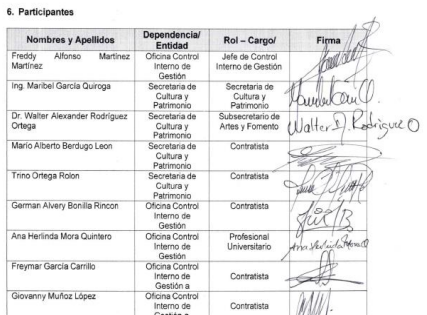 6. Participantes
Nombres y Apellidos Dependencia/ Entidad Rol – Cargo/ Firma
Freddy Alfonso Martinez Martínez Oficina Control Interno de Gestión Jefe de Control Interno de Gestión
Ing. Maribel García Quiroga Secretaria de Cultura y Patrimonio Secretaria de Cultura y Patrimonio
Dr. Walter Alexander Rodríguez Ortega Secretaria de Cultura y Patrimonio Subsecretario de Artes y Fomento Walter A. Rodriguez O
Mario Alberto Berdugo Leon Secretaria de Cultura y Patrimonio Contratista
Trino Ortega Rolon Secretaria de Cultura y Patrimonio Contratista
German Alvery Bonilla Rincon Oficina Control Interno de Gestión Contratista
Ana Herlinda Mora Quintero Oficina Control Interno de Gestión Profesional Universitario Ana Herlinda Mora Q
Freymar García Carrillo Oficina Control Interno de Gestión a Contratista
Giovanny Muñoz López Oficina Control Interno de Gestión a Contratista